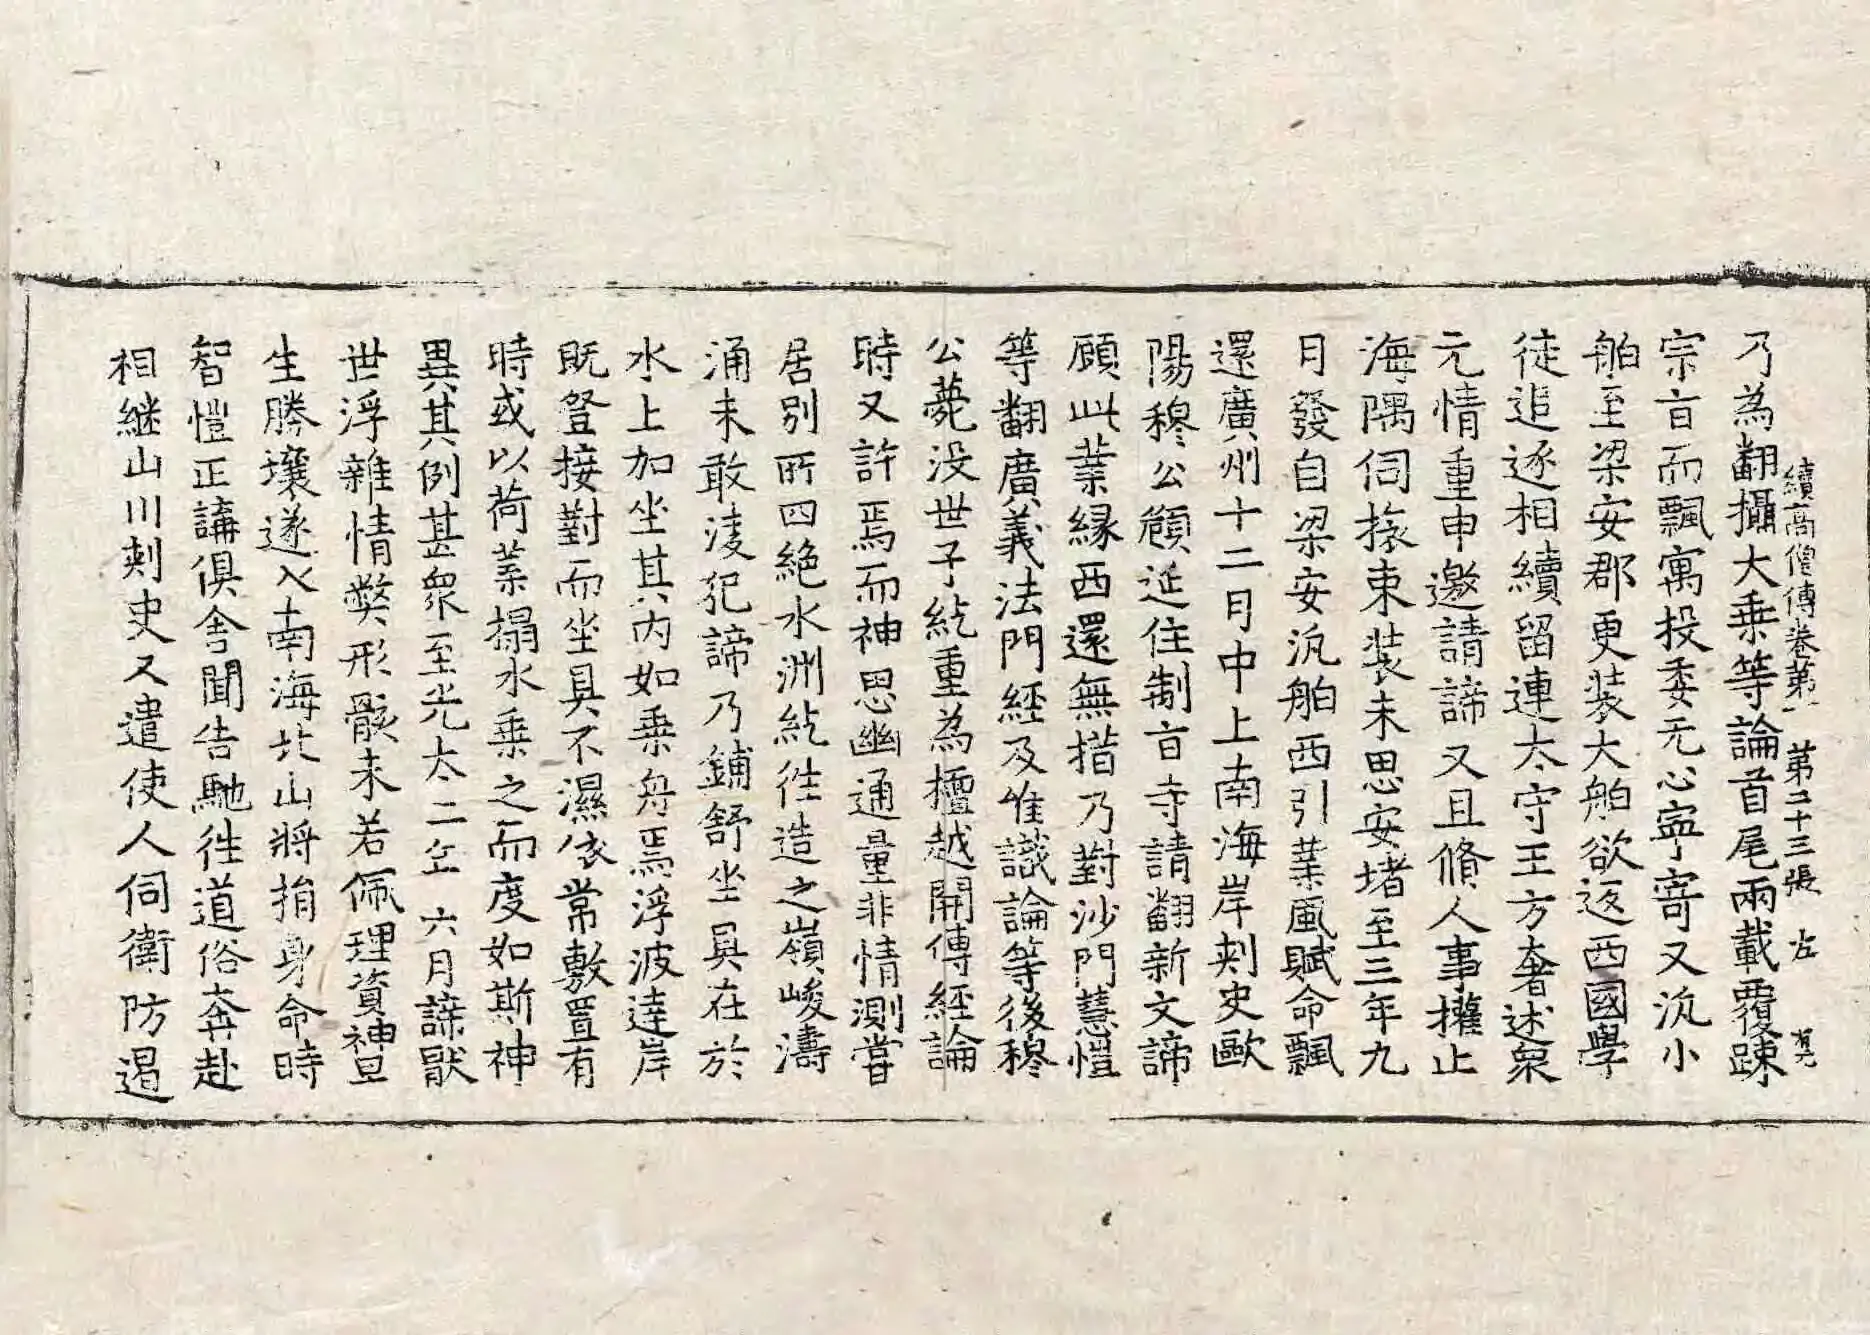 續高僧傳卷第一　第二十三張　左
乃為翻攝大乗等論首尾兩載覆踈
宗㫖而飄寓投委无心寧寄又汎小
舶至梁安郡更装大舶欲返西國學
徒追逐相續留連太守王方奢述衆
元情重申邀請諦又且脩人事權止
海隅伺旅束装未思安堵至三年九
月發自梁安汎舶西引業風賦命飄
還廣州十二月中上南海岸刺史歐
陽穆公頠延住制㫖寺請翻新文諦
顧此業縁西還無措乃對沙門慧愷
等翻廣義法門經及唯識論等後穆
公薨没世子紇重為檀越開傳經論
時又許焉而神思幽通量非情測甞
居别所四絶水洲紇往造之嶺峻濤
涌未敢淩犯諦乃鋪舒坐具在於
水上加坐其内如乗舟焉浮波達岸
既登接對而坐具不濕依常敷置有
時或以荷葉搨水乗之而度如斯神
異其例甚衆至光太二年六月諦猒
世浮雜情弊形骸未若佩理資神早
生勝壤遂入南海北山將捐身命時
智愷正講俱舍聞告馳往道俗奔赴
相継山川刺史又遣使人伺衛防遏